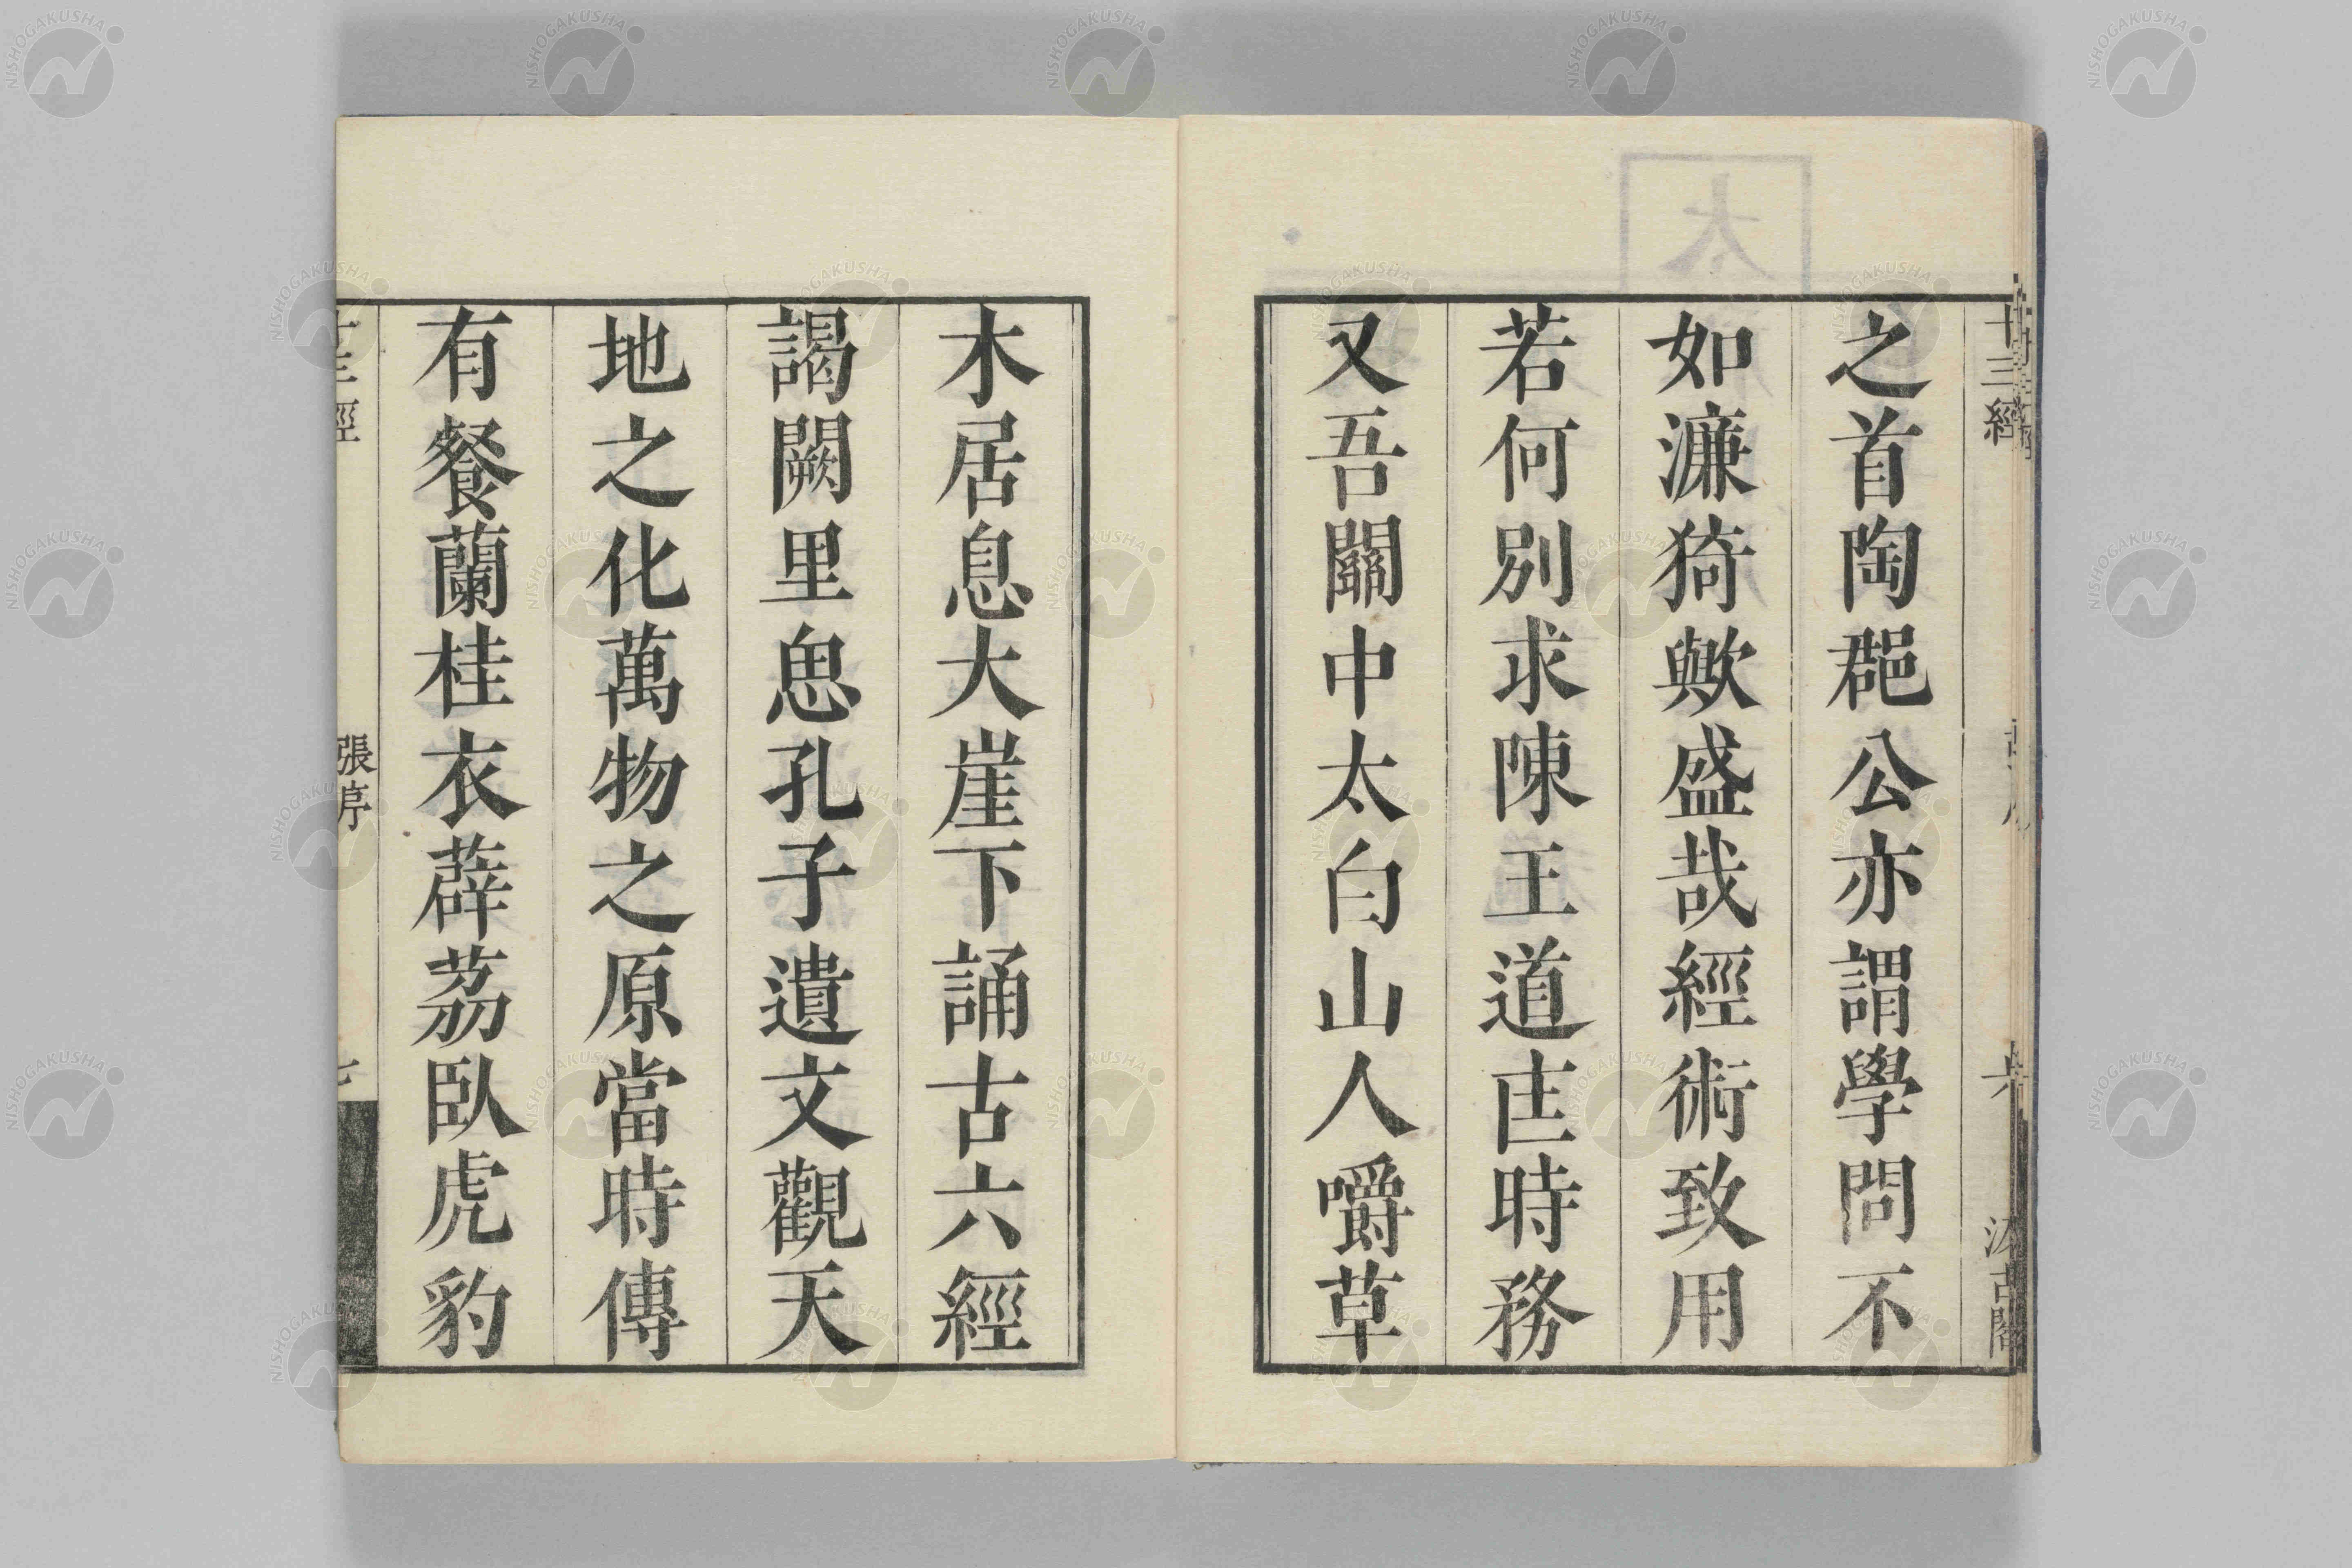 之首陶郡公亦謂學問不
如濂猗歟盛哉經術致用
若何別求陳王道𠤷時務
又吾關中太白山人嚼草
木居息大崖下誦古六經
謁闕里思孔子遺文觀天
地之化萬物之原當時傳
有餐蘭桂衣薜荔臥虎豹
張序
十三經
汲古閣
NISHOGAKUSHA